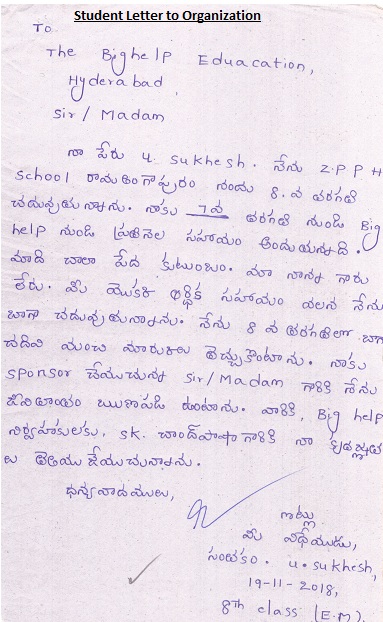 Student Letter to Organization
To
The Bighelp Eduacation,
Hyderabad
Sir / Madam
నా పేరు U. Sukhesh. నేను Z.P.P.H
School రామలింగాపురం నందు 8.వ తరగతి
చదువుతున్నాను. నాకు 7వ తరగతి నుండి Big
help నుండి ప్రతినెల సహాయం అందుతున్నది.
మాది చాలా పేద కుటుంబం. మా నాన్న గారు
లేరు. మీ యొక్క ఆర్థిక సహాయం వలన నేను
బాగా చదువుతున్నాను. నేను 8 వ తరగతిలో బాగా
చదివి మంచి మార్కులు తెచ్చుకొంటాను. నాకు
sponsor చేయుచున్న Sir/Madam గారికి నేను
జీవితాంతం ఋణపడి ఉంటాను. వారికి, Big help
నిర్వాహకులకు, SK. చాంద్‌పాషా గారికి నా కృతజ్ఞత
లు తెలియజేయుచున్నాను.
ధన్యవాదములు,
ఇట్లు
మీ విధేయుడు,
సంతకం. U. Sukhesh,
19-11-2018,
8th class (E.M)